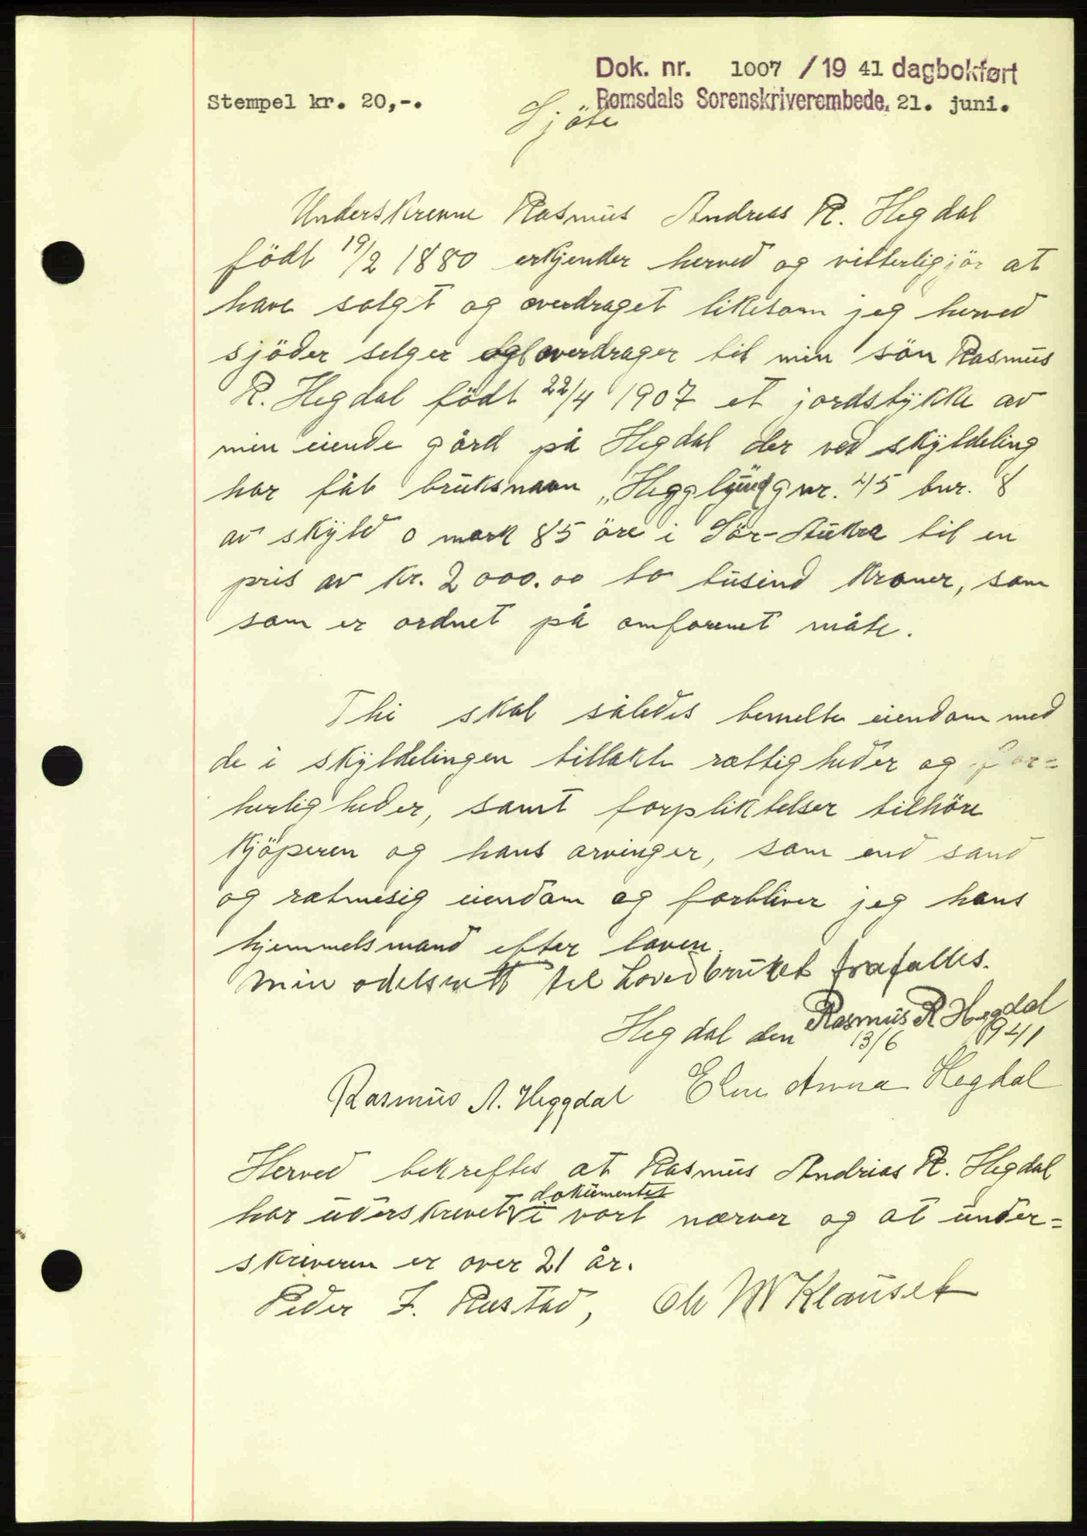 Dok. nr. 1007 / 19 41 dagbokført
Stempel kr. 20,-. Romsdals Sorenskriverembede. 21. juni.
Sjöte
Underskrevne Rasmus Andreas R. Hegdal
födt 19/2 1880 erkjender herved og vitterligjör at
have solgt og overdraget likesom jeg herved
sjöder selger og overdrager til min sön Rasmus
R. Hegdal födt 22/4 1907 et jordstykke av
min eiende gård på Hegdal der ved skyldeling
har fåt bruksnavn „Hegglund gnr. 45 bnr. 8
av skyld 0 mark 85 öre i Sör-Aukra til en
pris av kr. 2000.00 to tusind kroner, som
som er ordnet på omforenet måte.
Thi skal således bemelte eiendom med
de i skyldelingen tillakte rettigheder og for=
herligheder, samt forpliktelser tilhöre
kjöperen og hans arvinger, som end sand
og retmesig eiendom og forbliver jeg hans
hjemmelsmand efter loven.
Min odelsrett til hovedbruket frafalles.
Rasmus R Hegdal
Hegdal den 13/6 1941
Rasmus A. Heggdal Anna Hegdal
Herved bekreftes at Rasmus Andrias R. Hegdal
dokumentet
har uderskrevet i vort nærver og at under=
skriveren er over 21 år.
Peder J. Rustad, Klauset